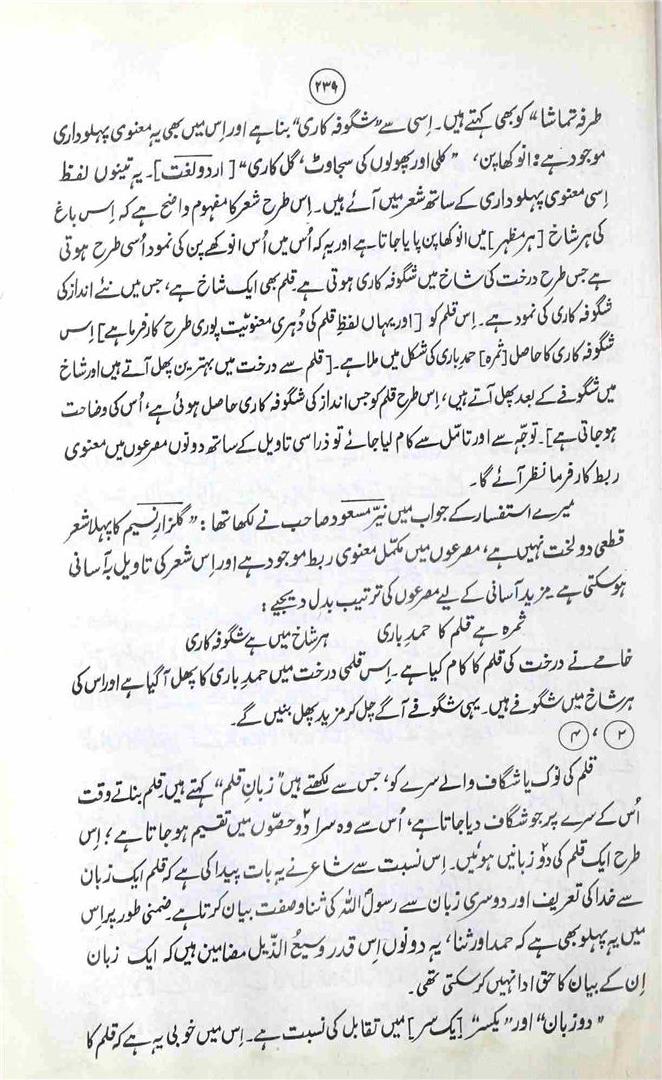 ۲۳۹
طرفہ تماشا“ کو بھی کہتے ہیں۔ اِسی سے ”شگوفہ کاری“ بنا ہے اور اِس میں بھی یہ معنوی پہلوداری
موجود ہے: انوکھا پن، ”کلی اور پھولوں کی سجاوٹ، گل کاری“ [اردو لغت]۔ یہ تینوں لفظ
اِسی معنوی پہلوداری کے ساتھ شعر میں آئے ہیں۔ اِس طرح شعر کا مفہوم واضح ہے کہ اِس باغ
کی ہر شاخ [ہر مظہر] میں انوکھا پن پایا جاتا ہے اور یہ کہ اُس میں اُس انوکھے پن کی نمود اُسی طرح ہوتی
ہے جس طرح درخت کی شاخ میں شگوفہ کاری ہوتی ہے۔ قلم بھی ایک شاخ ہے، جس میں نئے انداز کی
شگوفہ کاری کی نمود ہے۔ اِس قلم کو [اور یہاں لفظِ قلم کی دُہری معنویّت پوری طرح کارفرما ہے] اِس
شگوفہ کاری کا حاصل [ثمرہ] حمدِ باری کی شکل میں ملا ہے۔ [قلم سے درخت میں بہترین پھل آتے ہیں اور شاخ
میں شگوفے کے بعد پھل آتے ہیں، اِس طرح قلم کو جس انداز کی شگوفہ کاری حاصل ہوئی ہے، اُس کی وضاحت
ہو جاتی ہے]۔ توجّہ سے اور تامّل سے کام لیا جائے تو ذرا سی تاویل کے ساتھ دونوں مصرعوں میں معنوی
ربط کارفرما نظر آئے گا۔
میرے استفسار کے جواب میں نیّر مسعود صاحب نے لکھا تھا: ”گلزارِ نسیم کا پہلا شعر
قطعی دو لخت نہیں ہے، مصرعوں میں مکمّل معنوی ربط موجود ہے اور اِس شعر کی تاویل بہ آسانی
ہو سکتی ہے۔ مزید آسانی کے لیے مصرعوں کی ترتیب بدل دیجیے:
ثمرہ ہے قلم کا حمدِ باری ہر شاخ میں ہے شگوفہ کاری
خامے نے درخت کی قلم کا کام کیا ہے۔ اِس قلمی درخت میں حمدِ باری کا پھل آ گیا ہے اور اس کی
ہر شاخ میں شگوفے ہیں۔ یہی شگوفے آگے چل کر مزید پھل بنیں گے۔
۲، ۴
قلم کی نوک یا شگاف والے سرے کو، جس سے لکھتے ہیں ”زبانِ قلم“ کہتے ہیں۔ قلم بناتے وقت
اُس کے سرے پر جو شگاف دیا جاتا ہے، اُس سے وہ سرا دو حصّوں میں تقسیم ہو جاتا ہے؛ اِس
طرح ایک قلم کی دو زبانیں ہوئیں۔ اِس نسبت سے شاعر نے یہ بات پیدا کی ہے کہ قلم ایک زبان
سے خدا کی تعریف اور دوسری زبان سے رسولؐ اللہ کی ثنا و صفت بیان کرتا ہے۔ ضمنی طور پر اِس
میں یہ پہلو بھی ہے کہ حمد اور ثنا، یہ دونوں اِس قدر وسیعُ الذّیل مضامین ہیں کہ ایک زبان
اِن کے بیان کا حق ادا نہیں کر سکتی تھی۔
”دو زبان“ اور ”یکسر“ [یک سر] میں تقابل کی نسبت ہے۔ اِس میں خوبی یہ ہے کہ قلم کا